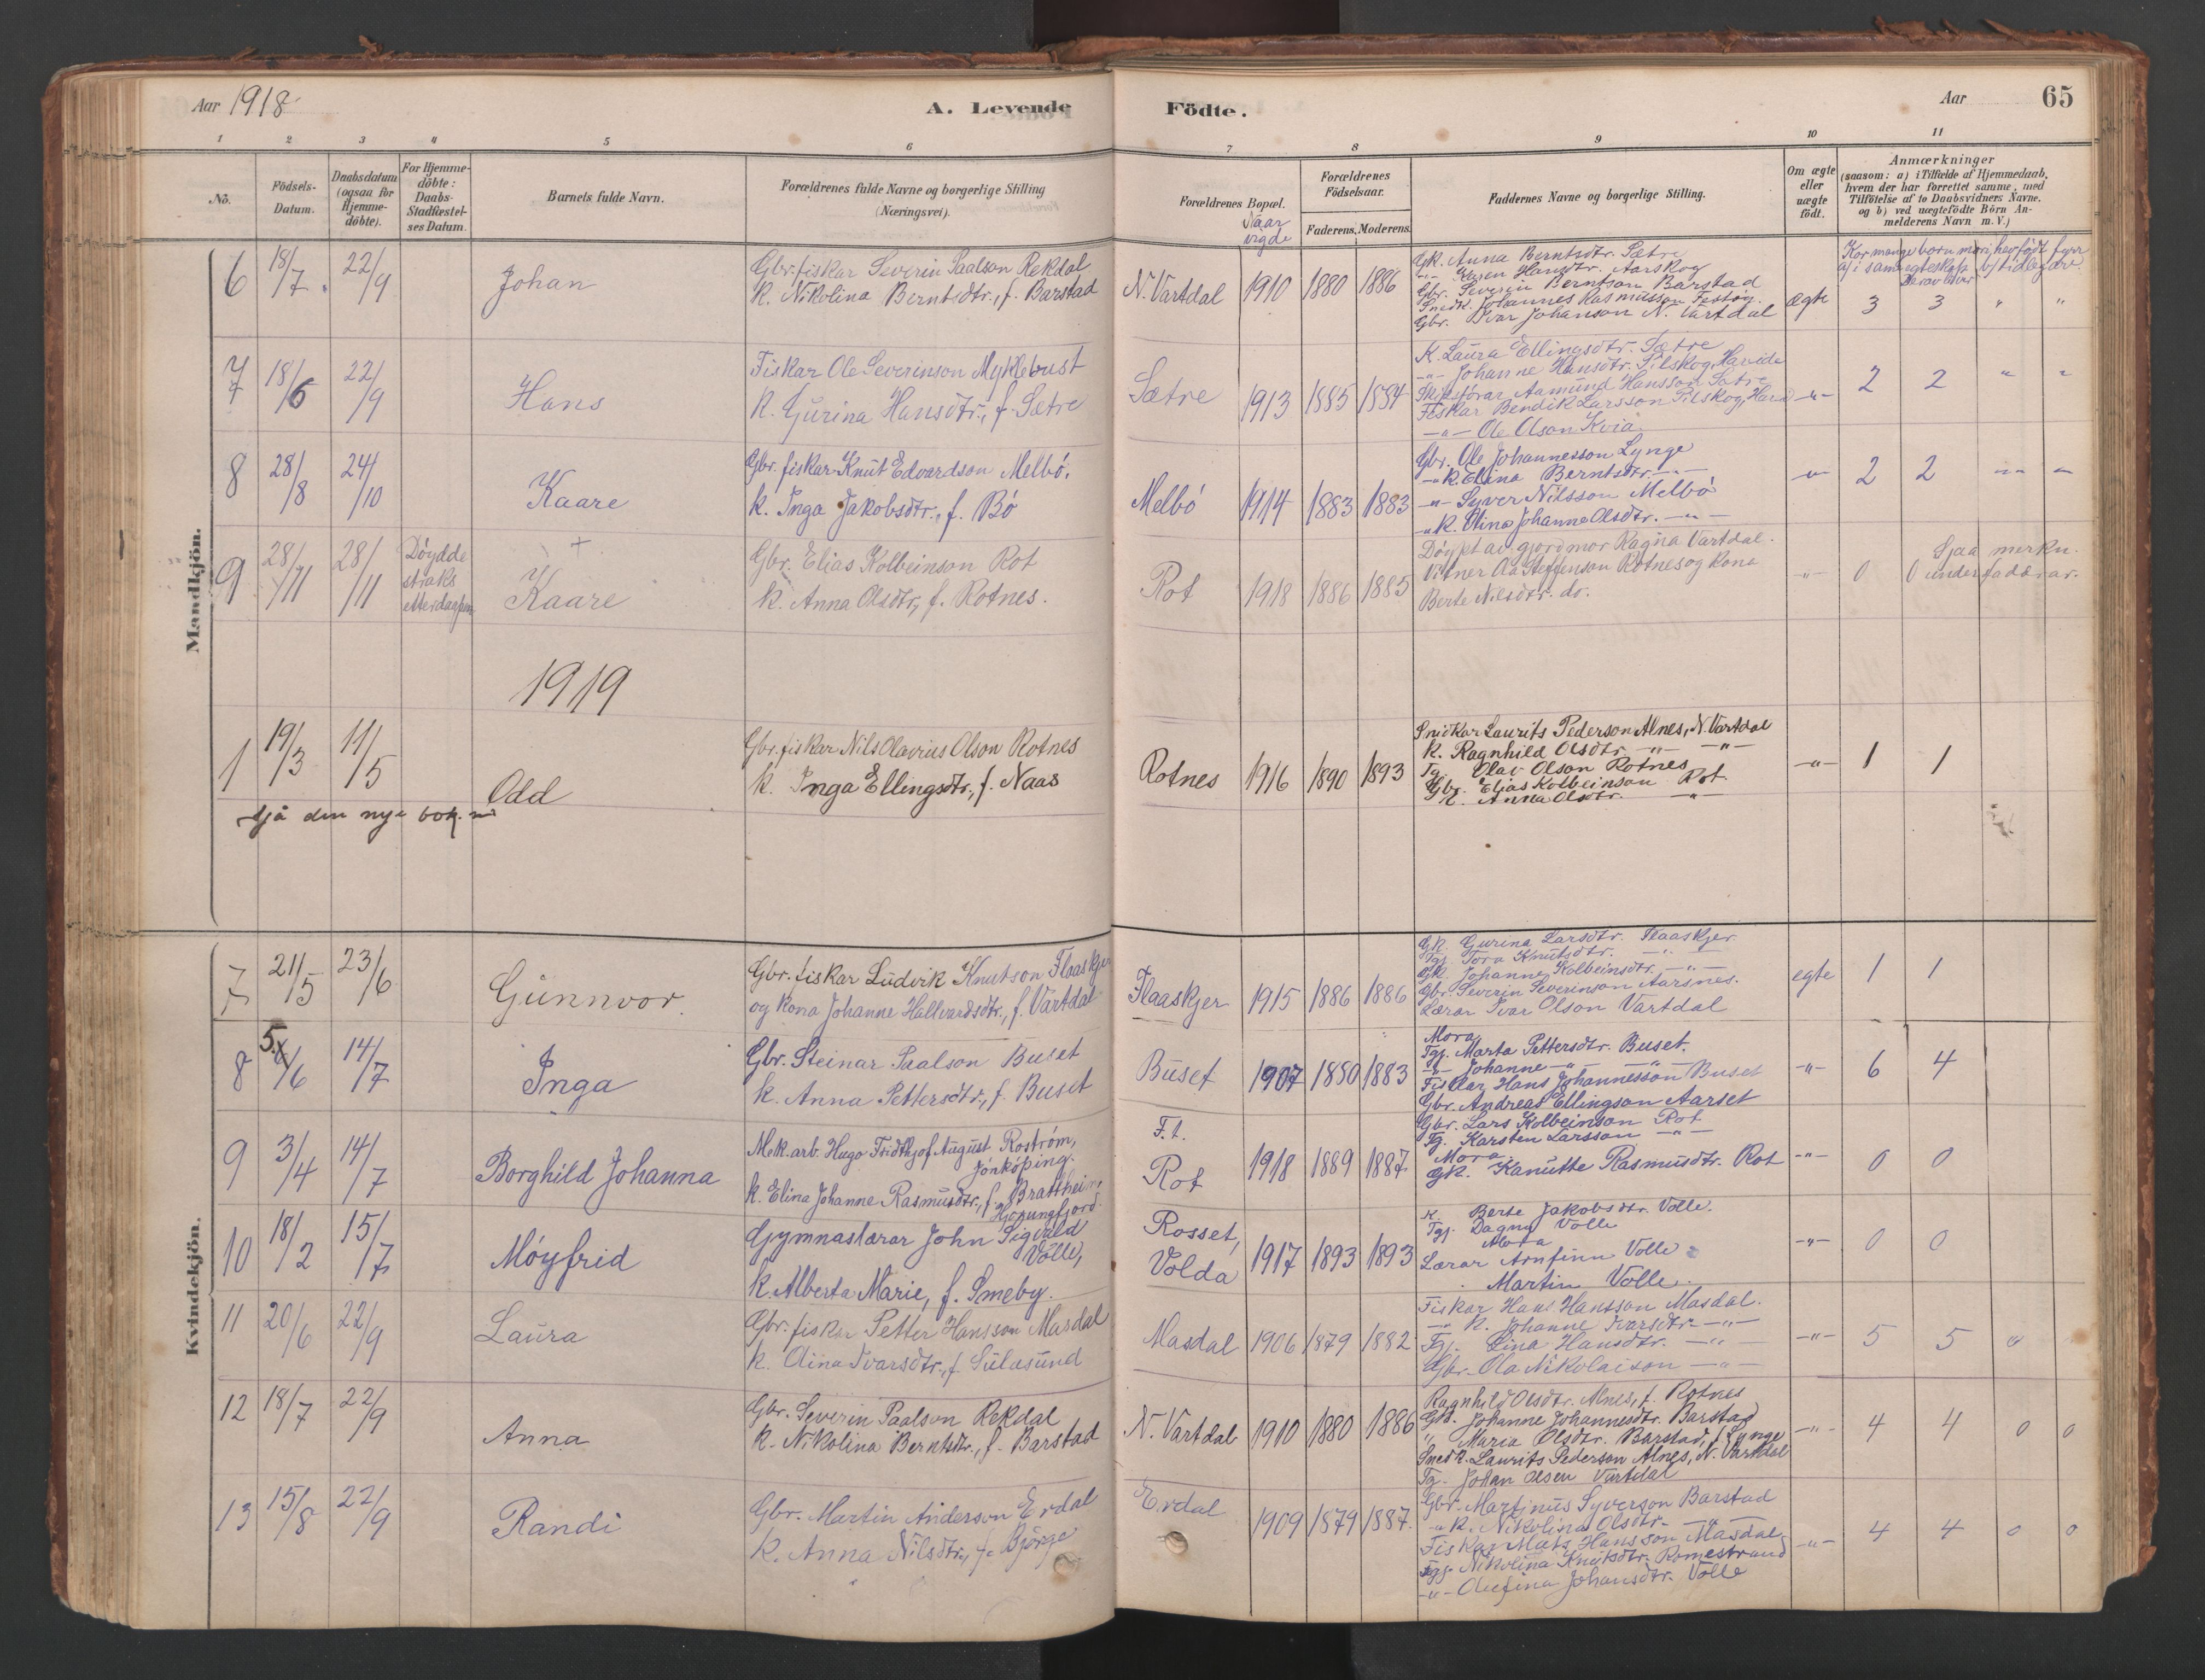 Aar 1918
A. Levende
Födte.
Aar
65
1 2 3 4 5 6 7 8 9 10 11
No.
Födsels-
Datum.
Daabsdatum
(ogsaa for
Hjemme-
döbte).
For Hjemme-
döbte:
Daabs-
Stadfæstel-
ses Datum.
Barnets fulde Navn.
Forældrenes fulde Navne og borgerlige Stilling
(Næringsvei).
Forældrenes Bopæl.
Naar
vigde
Forældrenes
Födselsaar.
Faderens. Moderens.
Faddernes Navne og borgerlige Stilling.
Om ægte
eller
uægte
födt.
Anmærkninger
(saasom: a) i Tilfælde af Hjemmedaab,
hvem der har forrettet samme, med
Tilföielse af to Daabsvidners Navne.
og b) ved uægtefödte Börn An-
melderens Navn m. V.)
Kor mange born mori hev födt fyrr
a) i sam egteskap b) tidlegare.
Derav liver
Mandkjön.
6 18/7 22/9
Johan
Gbr. fiskar Severin Paalson Rekdal
k. Nikolina Berntsdtr., f. Barstad
N. Vartdal 1910 1880 1886
Gk. Anna Berntsdtr. Sætre
-"- Karen Hansdtr. Aarskog
Gbr. Severin Berntson Barstad
Snedk. Johannes Rasmusson Festöy
Gbr. Ivar Johanson N. Vartdal
ægte 3 3 " "
7 18/6 22/9
Hans
Fiskar Ole Severinson Myklebust
k. Gurina Hansdtr., f. Sætre
Sætre 1913 1885 1884
K. Laura Ellingsdtr. Sætre
-"- Johanne Hansdtr. Pilskog, Hareide
Skipsförar Aamund Hansson Sætre
Fiskar Bendik Larsson Pilskog, Hareid
-"- Ole Olson Kvia.
-"- 2 2 " "
8 28/8 24/10
Kaare
Gbr. fiskar Knut Edvardson Melbö.
k. Inga Jakobsdtr., f. Bö
Melbö 1914 1883 1883
Gbr. Ole Johannesson Lynge
-"- k. Elina Berntsdtr. -"-
-"- Syver Nilsson Melbö
-"- k. Olina Johanne Olsdtr. -"-
-"- 2 2 -"- "
9 28/11 28/11
Döydde
straks
etter daapen
+
Kaare
Gbr. Elias Kolbeinson Rot
k. Anna Olsdtr., f. Rotnes.
Rot 1918 1886 1885
Döypt av gjordmor Ragna Vartdal.
Vitner Ola Steffenson Rotnes og kona
Berte Nilsdtr. do.
-"- 0 0
Sjaa merkn.
under faddrar.
1919
1 19/3 11/5
Odd
Gbr. fiskar Nils Olavius Olson Rotnes
k. Inga Ellingsdtr., f. Naas
Rotnes 1916 1890 1893
Snidkar Laurits Pederson Alnes, N. Vartdal
k. Ragnhild Olsdtr. -"- -"-
Tg. Olav Olson Rotnes
Gbr. Elias Kolbeinson Rot.
k. Anna Olsdtr. -"-
-"- 1 1
sjå den nye bok.
Kvindekjön.
7 21/5 23/6
Gunnvor.
Gbr. fiskar Ludvik Knutson Flaaskjer
og kona Johanne Hallvardsdtr., f. Vartdal
Flaaskjer 1915 1886 1886
Gk. Gurina Larsdtr. Flaaskjer
Tgj. Tora Knutsdtr. -"-
Gk. Johanne Kolbeinsdtr. -"-
Gbr. Severin Severinson Aarsnes.
Lærar Ivar Olson Vartdal
egte 1 1
8 5/6 14/7
Inga
Gbr. Steinar Paalson Buset
k. Anna Pettersdtr., f. Buset
Buset 1907 1880 1883
Mora,
Tgj. Marta Pettersdtr. Buset.
-"- Johanne -"- -"-
Fiskar Hans Johannesson Buset
Gbr. Andreas Ellingson Aarset
-"- 6 4
9 3/4 14/7
Borghild Johanna
Mek. arb. Hugo Fridthjof August Roström,
Jönköping.
k. Elina Johanne Rasmusdtr., f. Brattheim
Hjörungfjord.
F. t.
Rot 1918 1889 1887
Gbr. Lars Kolbeinson Rot
Tg. Karsten Larsson -"-
Mora
Gk. Kanutte Rasmusdtr. Rot
-"- 0 0
10 18/2 15/7
Möyfrid
Gymnaslærar John Sigvald
Volle,
k. Alberta Marie, f. Smeby.
Rosset,
Volda 1917 1893 1893
K. Berte Jakobsdtr. Volle.
Tgj. Dagny Volle
Mora
Lærar Arnfinn Volle
Martin Volle.
-"- 0 0
11 20/6 22/9
Laura
Gbr. fiskar Petter Hansson Masdal
k. Olina Ivarsdtr., f. Sulasund
Masdal 1906 1879 1882
Fiskar Hans Hansson Masdal.
-"- k. Johanne Ivarsdtr. -"-
Tgj. Lina Hansdtr. -"-
Gbr. Ola Nikolaison -"-
-"- 5 5 "
12 18/7 22/9
Anna
Gbr. Severin Paalson Rekdal
k. Nikolina Berntsdtr., f. Barstad
N. Vartdal 1910 1880 1886
Ragnhild Olsdtr. Alnes, f. Rotnes
Gk. Johanne Johannesdtr. Barstad
" Maria Olsdtr. Barstad, f. Lynge
Snedk. Laurits Pederson Alnes, N. Vartdal
Tg. Johan Olsen Vartdal
-"- 4 4 0 0
13 15/8 22/9
Randi
Gbr. Martin Anderson Erdal
k. Anna Nilsdtr., f. Björge
Erdal 1909 1879 1887.
Gbr. Martinus Syverson Barstad
-"- k. Nikolina Olsdtr. -"-
Fiskar Mats Hansson Masdal
Tgj. Nikolina Knutsdtr. Romestrand
-"- Olufina Johansdtr. Volle
-"- 4 4 0 0